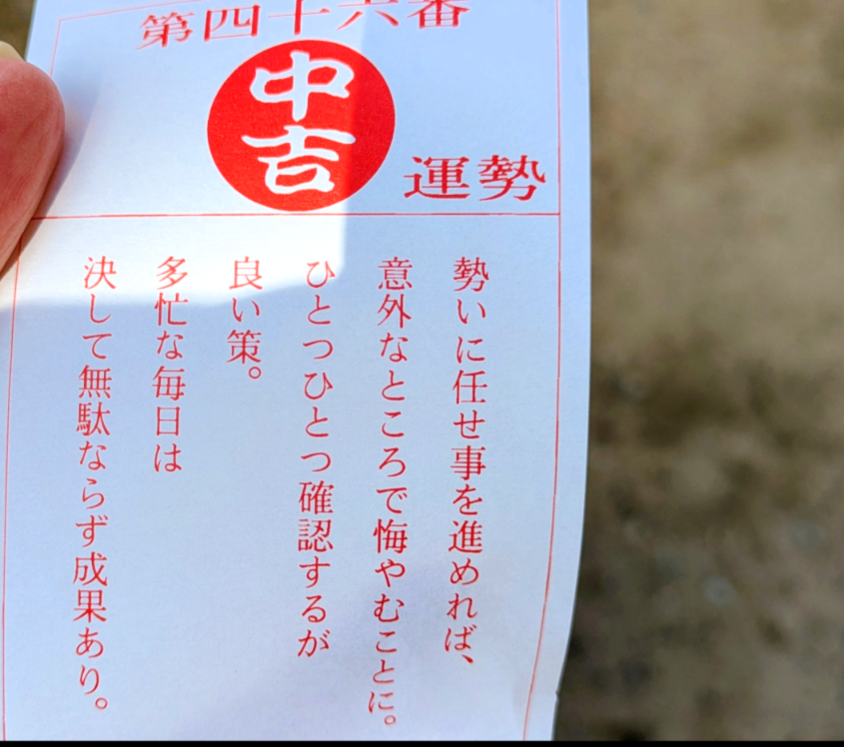 第四十六番
中吉
運勢
勢いに任せ事を進めれば、
意外なところで悔やむことに。
ひとつひとつ確認するが
良い策。
多忙な毎日は
決して無駄ならず成果あり。